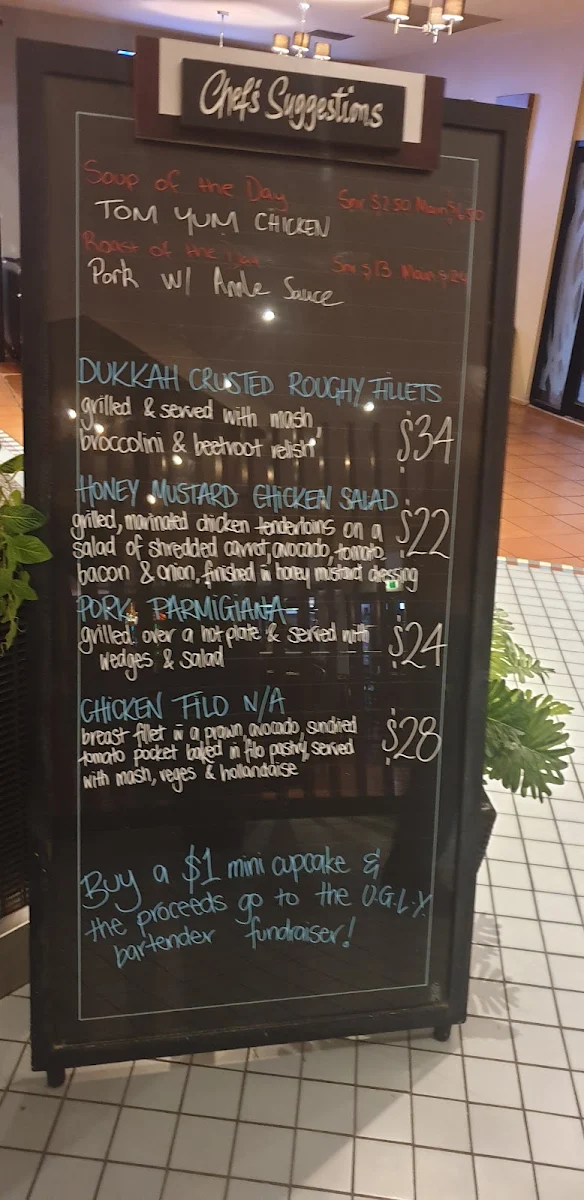 Chef's Suggestions
Soup of the Day Snr $2.50 Main $6.50
TOM YUM CHICKEN
Roast of the Day Snr $13 Main $24
Pork w/ Apple Sauce
DUKKAH CRUSTED ROUGHY FILLETS
grilled & served with mash,
broccolini & beetroot relish $34
HONEY MUSTARD CHICKEN SALAD
grilled, marinated chicken tenderloins on a $22
salad of shredded carrot, avocado, tomato,
bacon & onion, finished in honey mustard dressing
PORK PARMIGIANA
grilled over a hot plate & served with $24
wedges & salad
CHICKEN FILO N/A
breast fillet in a prawn, avocado, sundried $28
tomato pocket baked in filo pastry, served
with mash, veges & hollandaise
Buy a $1 mini cupcake &
the proceeds go to the U.G.L.Y.
bartender fundraiser!